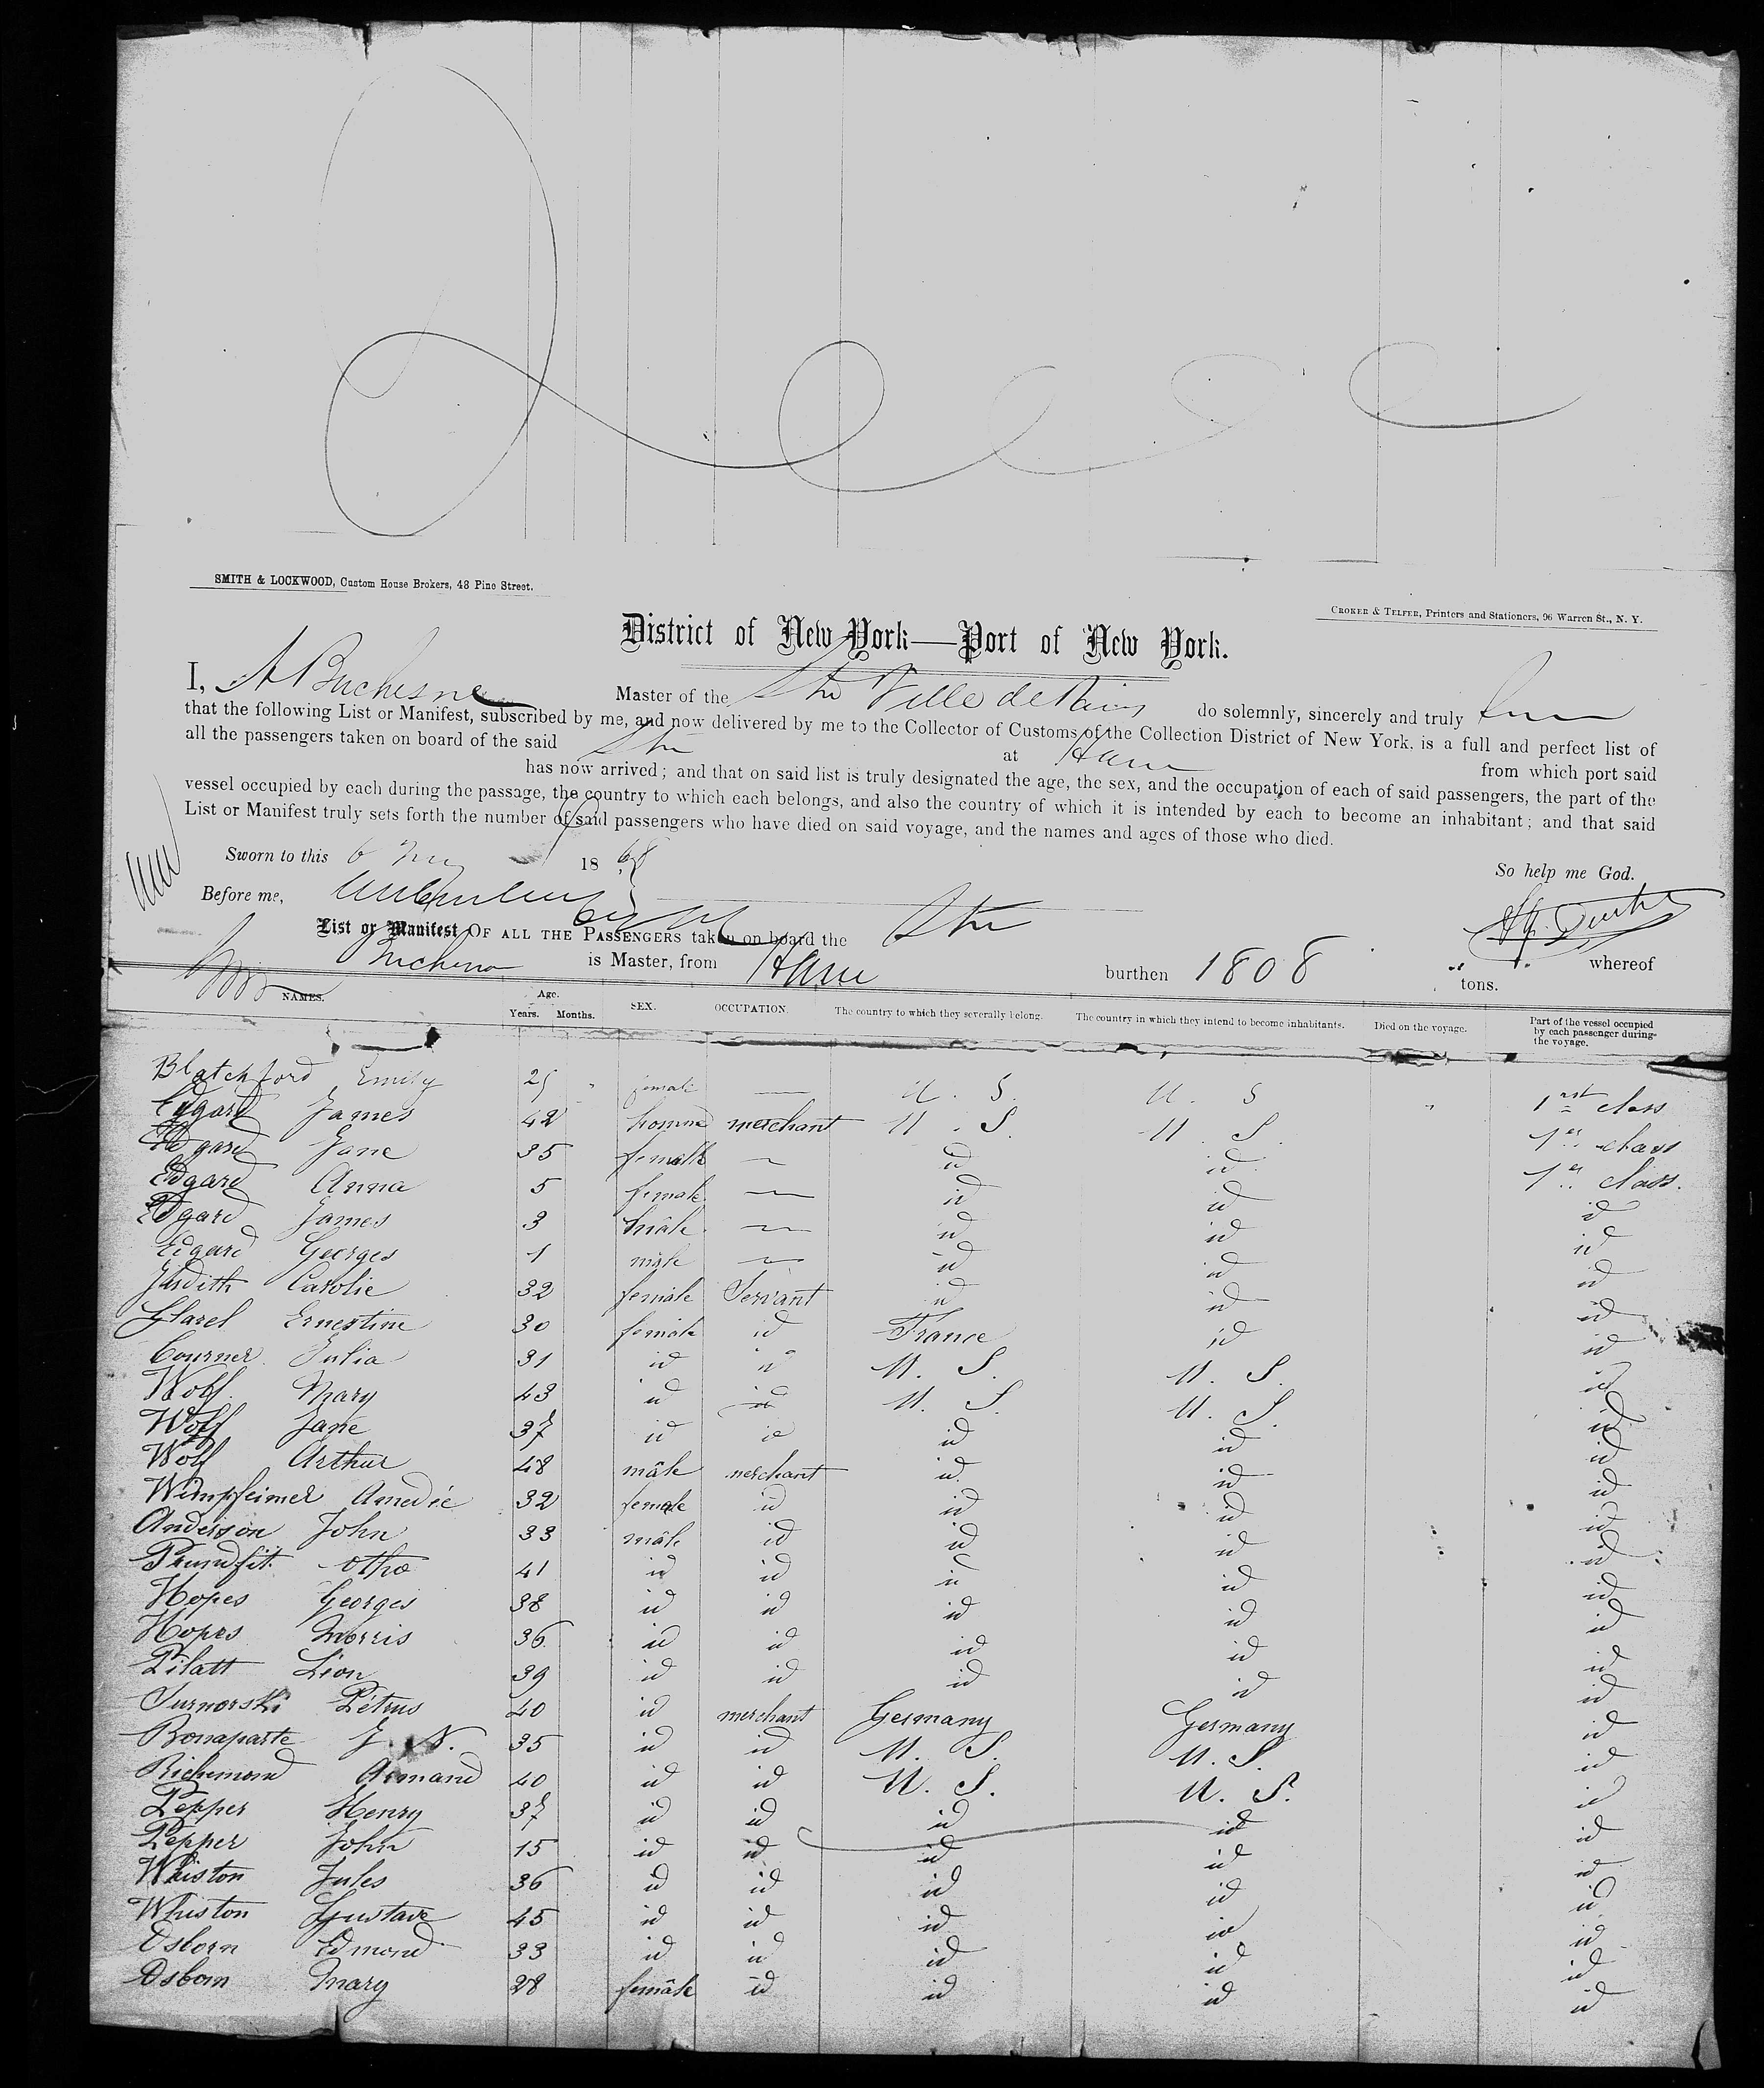 SMITH & LOCKWOOD, Custom House Brokers, 48 Pine Street.
CROKER & TELFER, Printers and Stationers, 96 Warren St., N. Y.
District of New York—Port of New York.
I, A Duchesne Master of the Str Ville de Paris do solemnly, sincerely and truly
that the following List or Manifest, subscribed by me, and now delivered by me to the Collector of Customs of the Collection District of New York, is a full and perfect list of
all the passengers taken on board of the said Str at Havre from which port said
has now arrived; and that on said list is truly designated the age, the sex, and the occupation of each of said passengers, the part of the
vessel occupied by each during the passage, the country to which each belongs, and also the country of which it is intended by each to become an inhabitant; and that said
List or Manifest truly sets forth the number of said passengers who have died on said voyage, and the names and ages of those who died.
Sworn to this 6 1868
So help me God.
Before me,
List or Manifest OF ALL THE PASSENGERS taken on board the Str
whereof
Duchesne is Master, from Havre burthen 1808 tons.
NAMES. Age. Years. Months. SEX. OCCUPATION. The country to which they severally belong. The country in which they intend to become inhabitants. Died on the voyage. Part of the vessel occupied by each passenger during the voyage.
Blatchford Emily 25 " female — U. S. U. S " 1rst class
Edgard James 42 homme merchant U. S. U. S. 1er class
Edgard Jane 35 female — id id 1er class.
Edgard Anna 5 female — id id id
Edgard James 3 mâle — id id id
Edgard Georges 1 mâle — id id id
Judith Carolie 32 female Servant id id id
Glarel Ernestine 30 female id France id id
Courner Julia 31 id id U. S. U. S. id
Wolf Mary 43 id id U. S. U. S. id
Wolf Jane 37 id id id id id
Wolf Arthur 48 mâle merchant id id id
Wimpfeimer Amedie 32 female id id id id
Anderson John 33 mâle id id id id
Prundfit Otho 41 id id id id id
Hopes Georges 38 id id id id id
Hopes Morris 36 id id id id id
Pilatt Léon 39 id id id id id
Surnorski Pétrus 40 id merchant Germany Germany id
Bonaparte J. N. 35 id id U. S. U. S. id
Richemond Armand 40 id id U. S. U. S. id
Pepper Henry 37 id id id id id
Pepper John 15 id id id id id
Whiston Jules 36 id id id id id
Whiston Gustave 45 id id id id id
Osborn Edmond 33 id id id id id
Osborn Mary 28 femâle id id id id